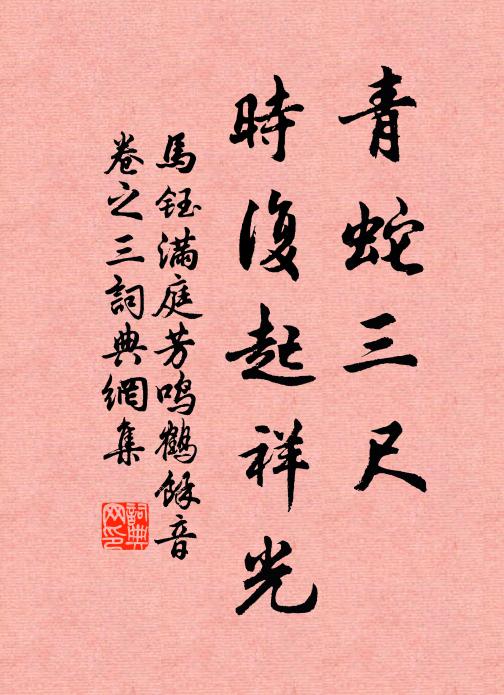 青蛇三尺
時復起祥光
馬鈺滿庭芳鳴鶴餘音
卷之三詞典網集
詞典网印